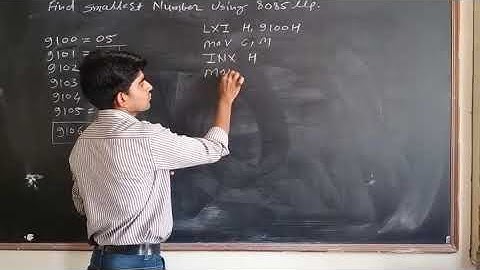 Find Smallest Number Using 8085 Up.
9100 = 05
9101 =
9102
9103
9104
9105 =
9106
LXI H, 9100H
MOV C, M
INX H
MOV